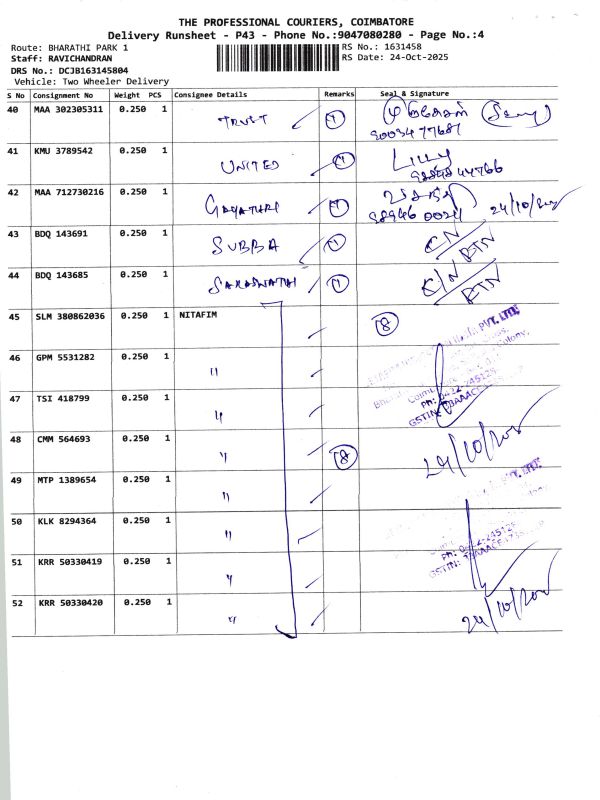 THE PROFESSIONAL COURIERS, COIMBATORE
Delivery Runsheet - P43 - Phone No.:9047080280 - Page No.:4
Route: BHARATHI PARK 1 RS No.: 1631458
Staff: RAVICHANDRAN RS Date: 24-Oct-2025
DRS No.: DCJB163145804
Vehicle: Two Wheeler Delivery
S No Consignment No Weight PCS Consignee Details Remarks Seal & Signature
40 MAA 302305311 0.250 1 TRUST 1
41 KMU 3789542 0.250 1 UNITED 1 Lilly
42 MAA 712730216 0.250 1 GAYATHRI 1
43 BDQ 143691 0.250 1 SUBBA 1 CN RTN
44 BDQ 143685 0.250 1 SARASWATHI 1 C/N RTN
45 SLM 380862036 0.250 1 NITAFIM 8
PVT. LTD.
46 GPM 5531282 0.250 1 "
47 TSI 418799 0.250 1 "
48 CMM 564693 0.250 1 " 8
24/10/2025
49 MTP 1389654 0.250 1 "
50 KLK 8294364 0.250 1 "
51 KRR 50330419 0.250 1 "
52 KRR 50330420 0.250 1 "
24/10/2025